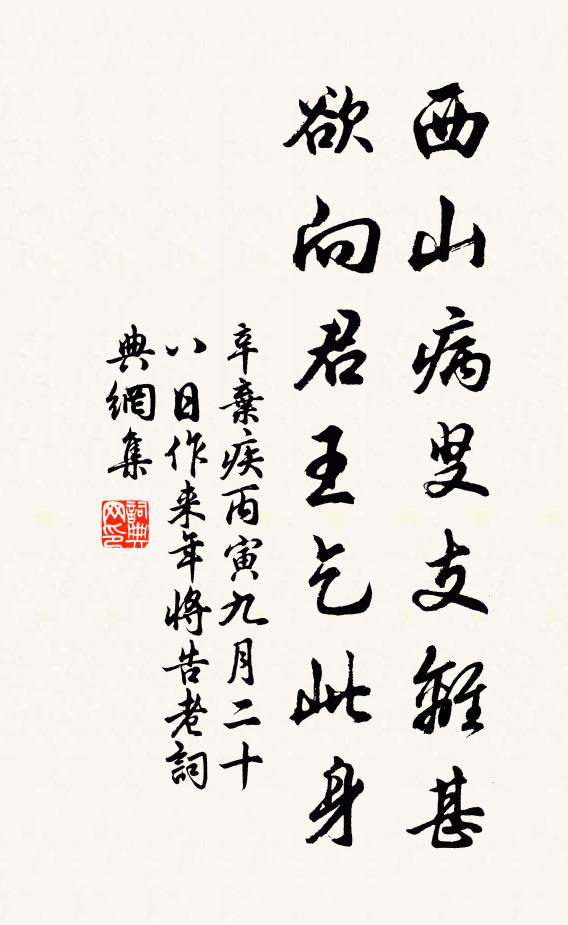 西山病叟支離甚
欲向君王乞此身
辛棄疾丙寅九月二十
八日作来年將告老詞
典網集
詞典
网印